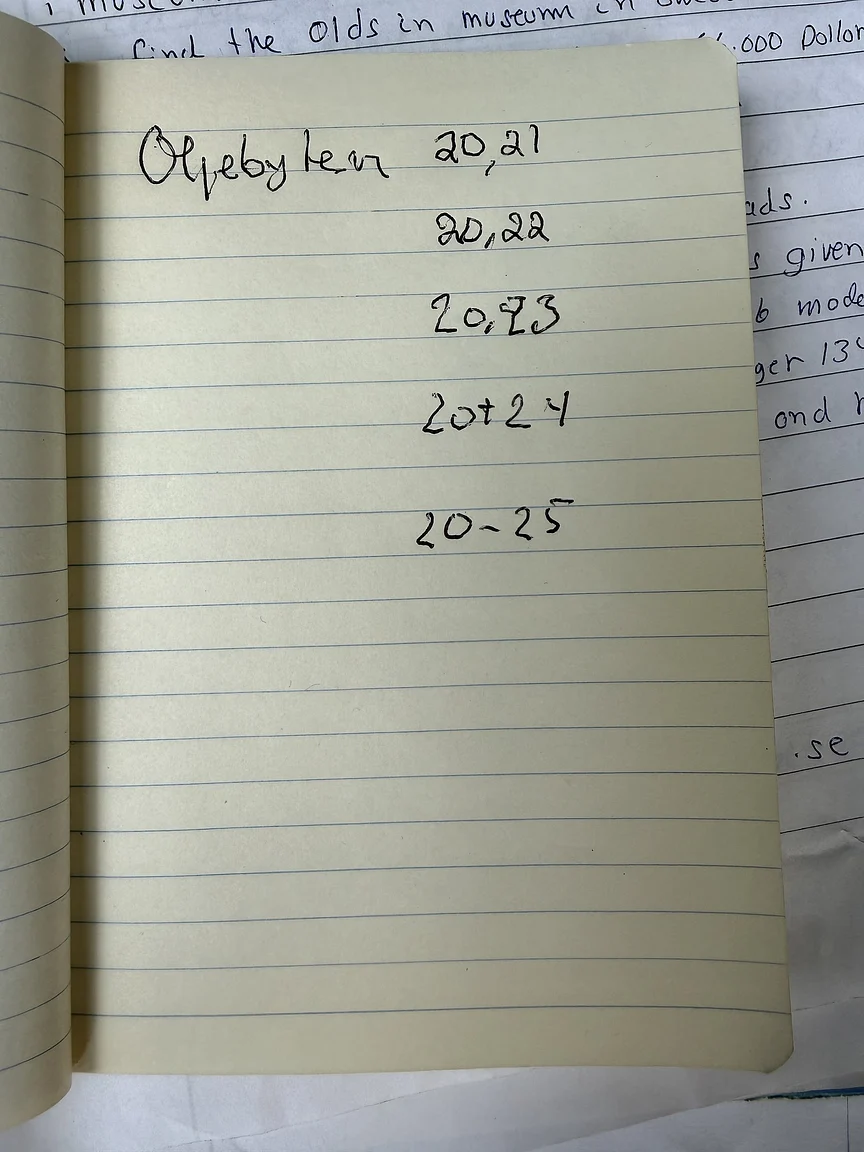 i museum
find the Olds in museum in Swed
.000 Dollar
Oljebyten 20,21
20,22
20,23
20+24
20-25
ads.
s given
6 mode
ger 134
and
.se